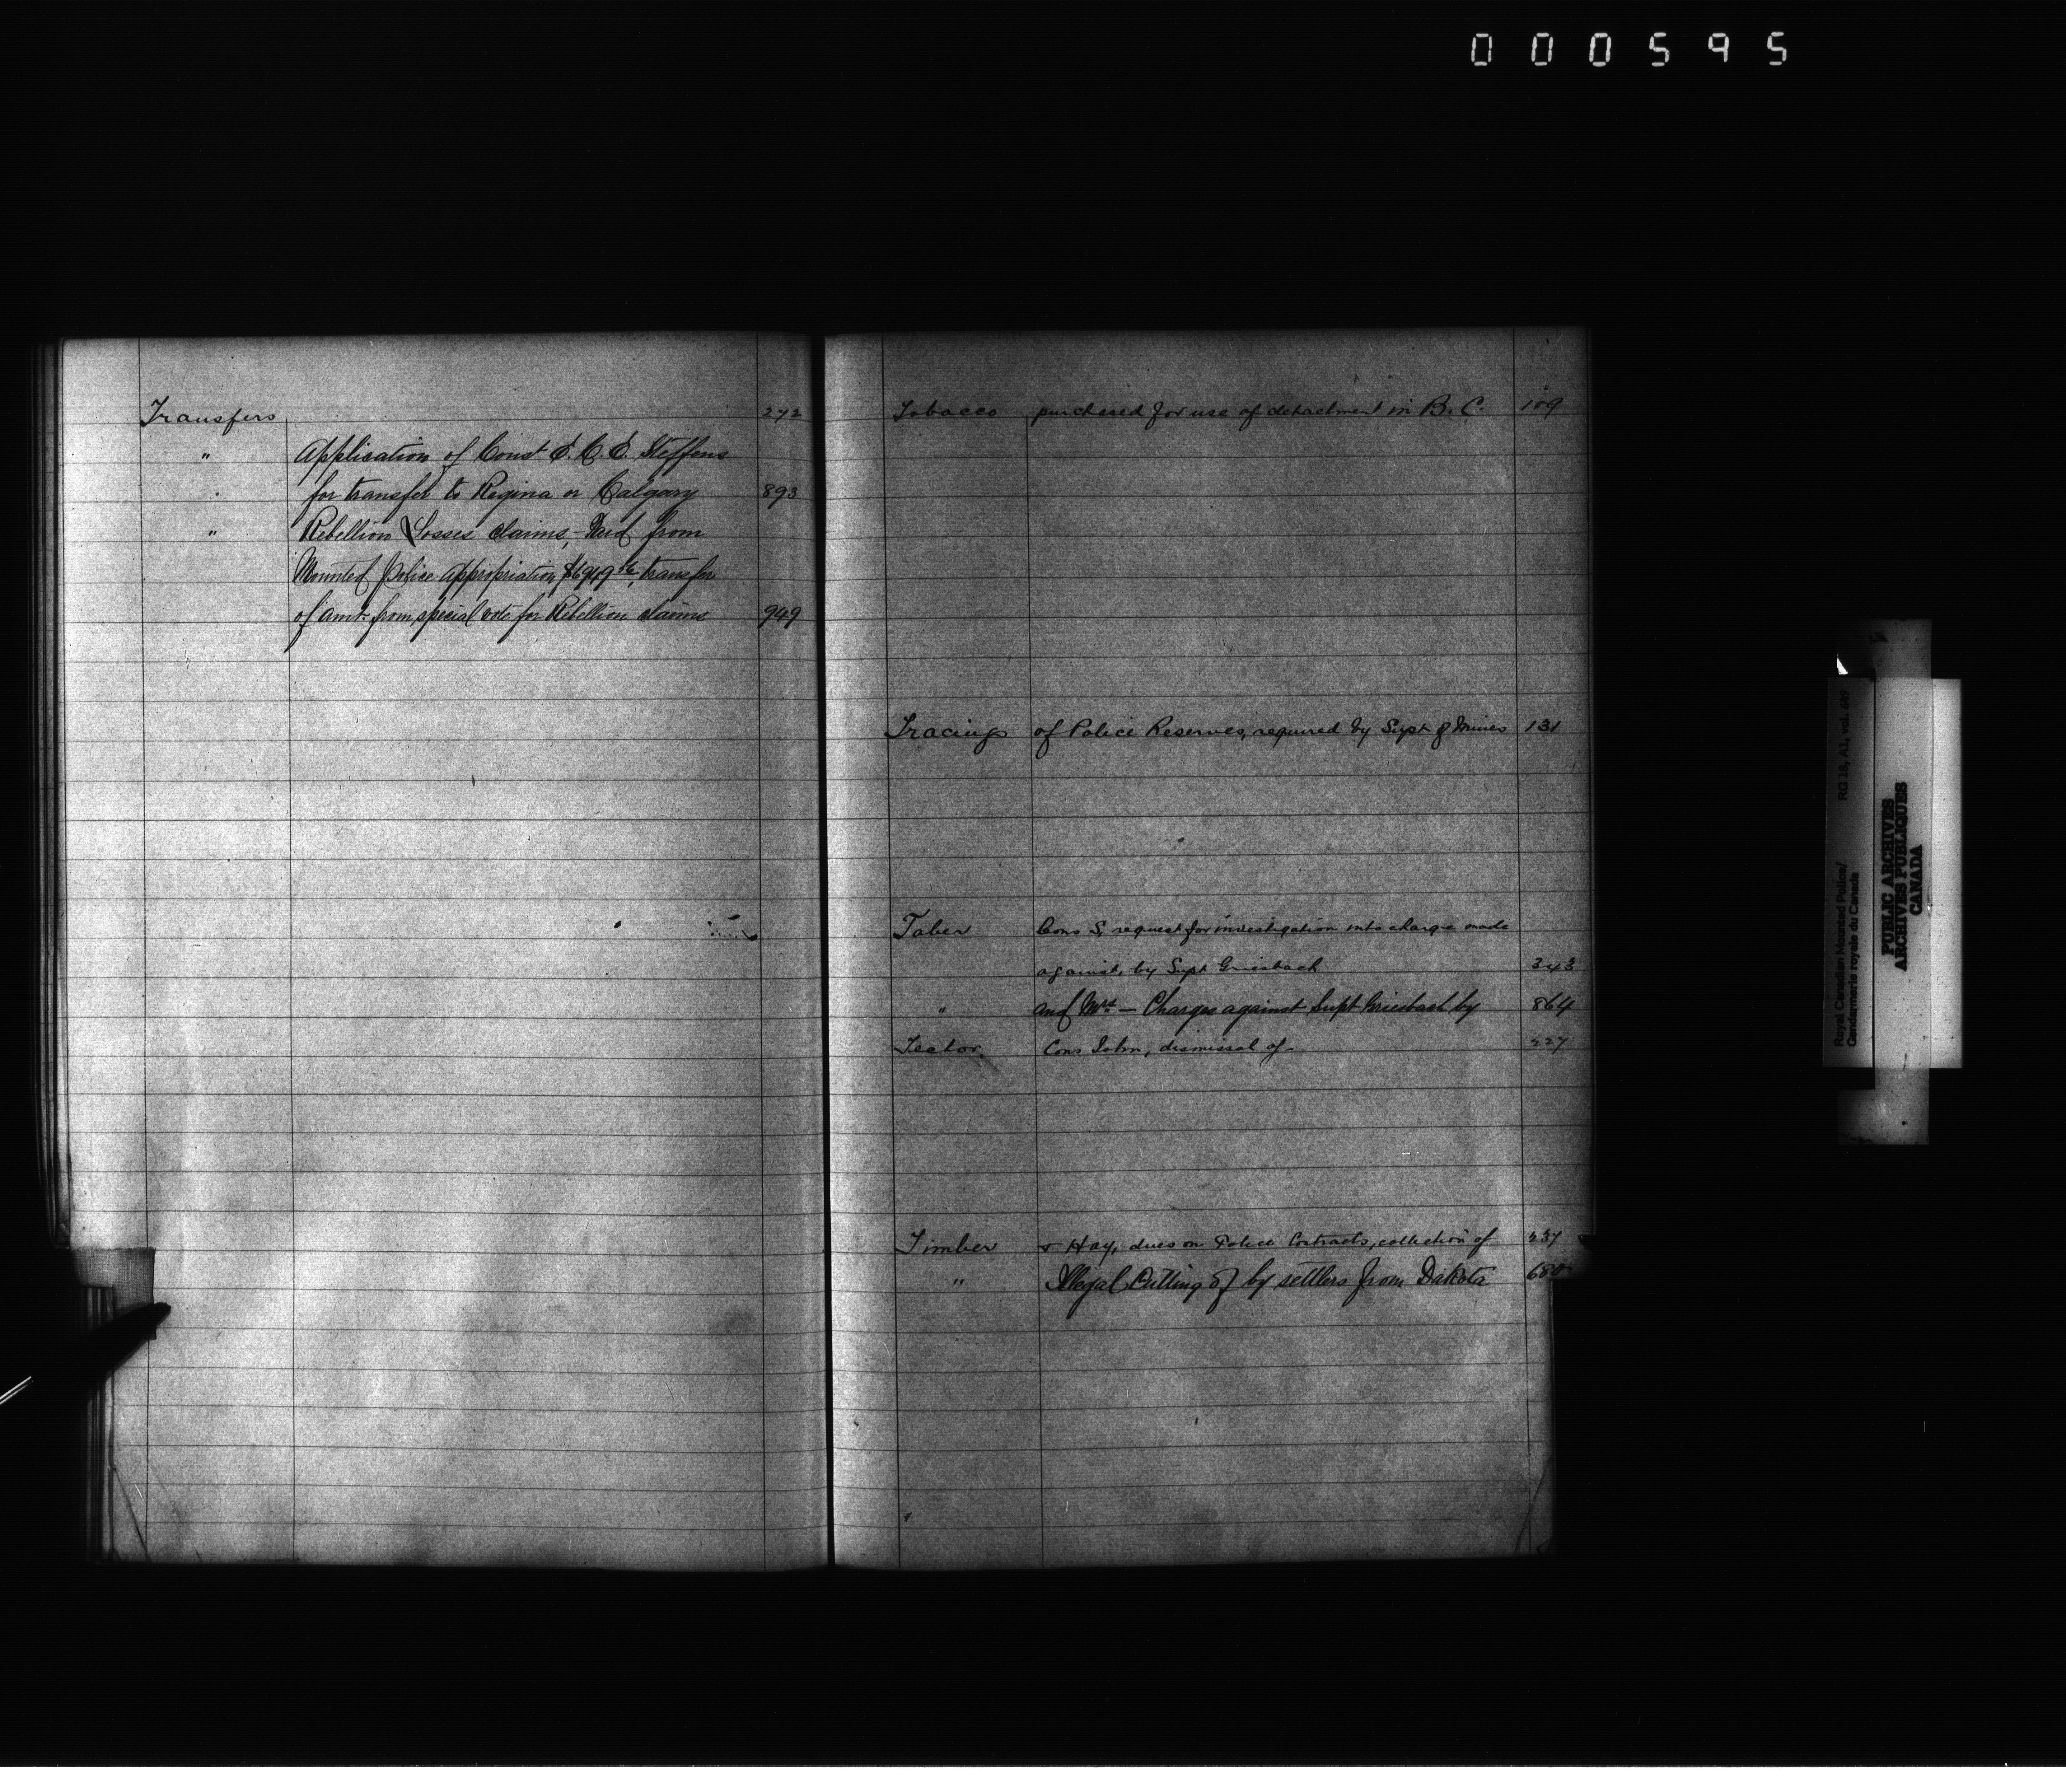 000595
Transfers 272
" Application of Const E. C. E. Steffens
" for transfer to Regina or Calgary 893
" Rebellion Losses claims, - from
Mounted Police Appropriation, transfer
of amt. from special vote for Rebellion claims 949
Tobacco purchased for use of detachment in B. C. 109
Tracings of Police Reserves, required by Supt of Mines 131
Taber Cons S, request for investigation into charge made
against, by Supt Griesbach 343
" and Mrs — Charges against Supt Griesbach by 864
Tector Cons John, dismissal of - 227
Timber & Hay, dues on Police Contracts, collection of 237
" Illegal Cutting of by settlers from Dakota 680
Royal Canadian Mounted Police/
Gendarmerie royale du Canada
RG 18, A1, vol. 649
PUBLIC ARCHIVES
ARCHIVES PUBLIQUES
CANADA